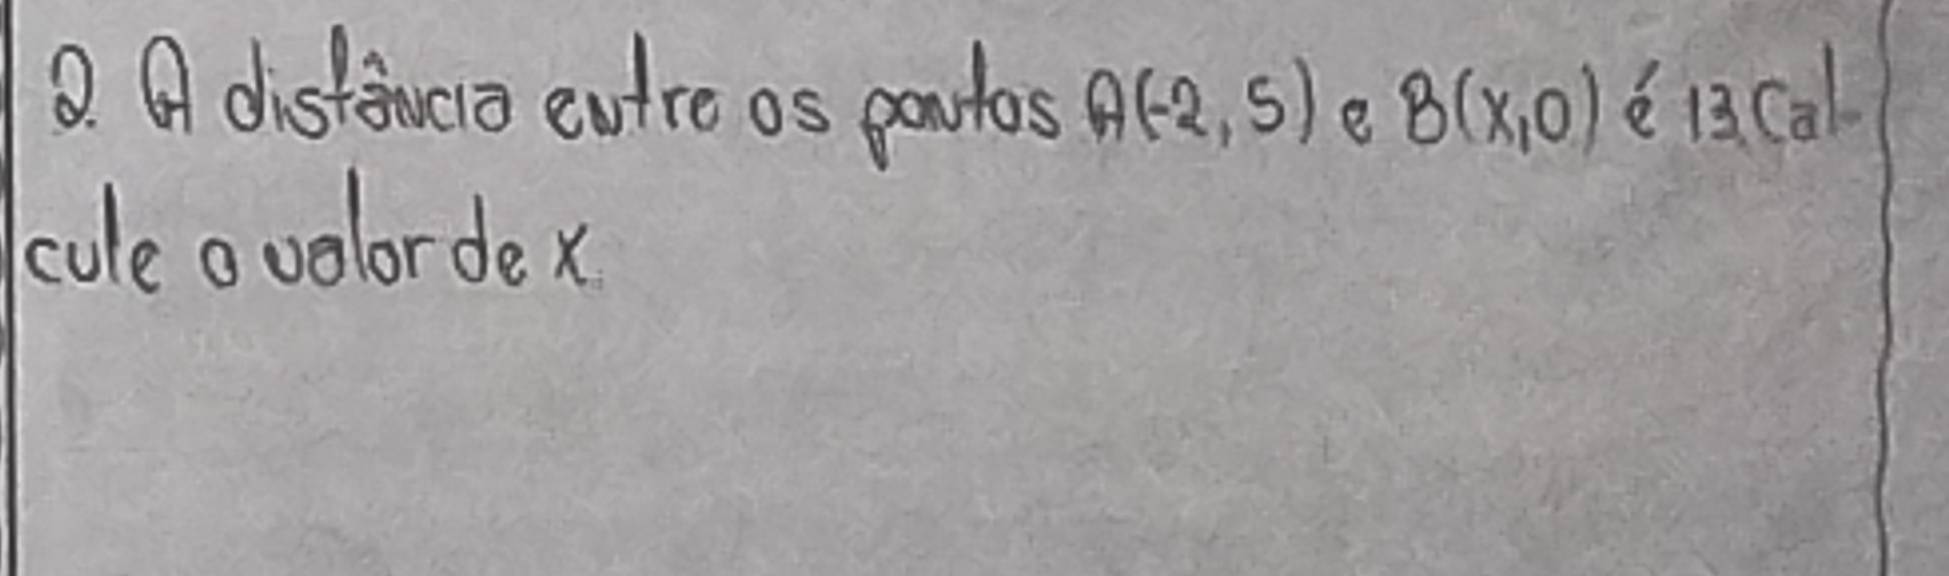 2. A distância entre os pontos A(-2, 5) e B(x,0) é 13. Cal-
cule o valor de x.